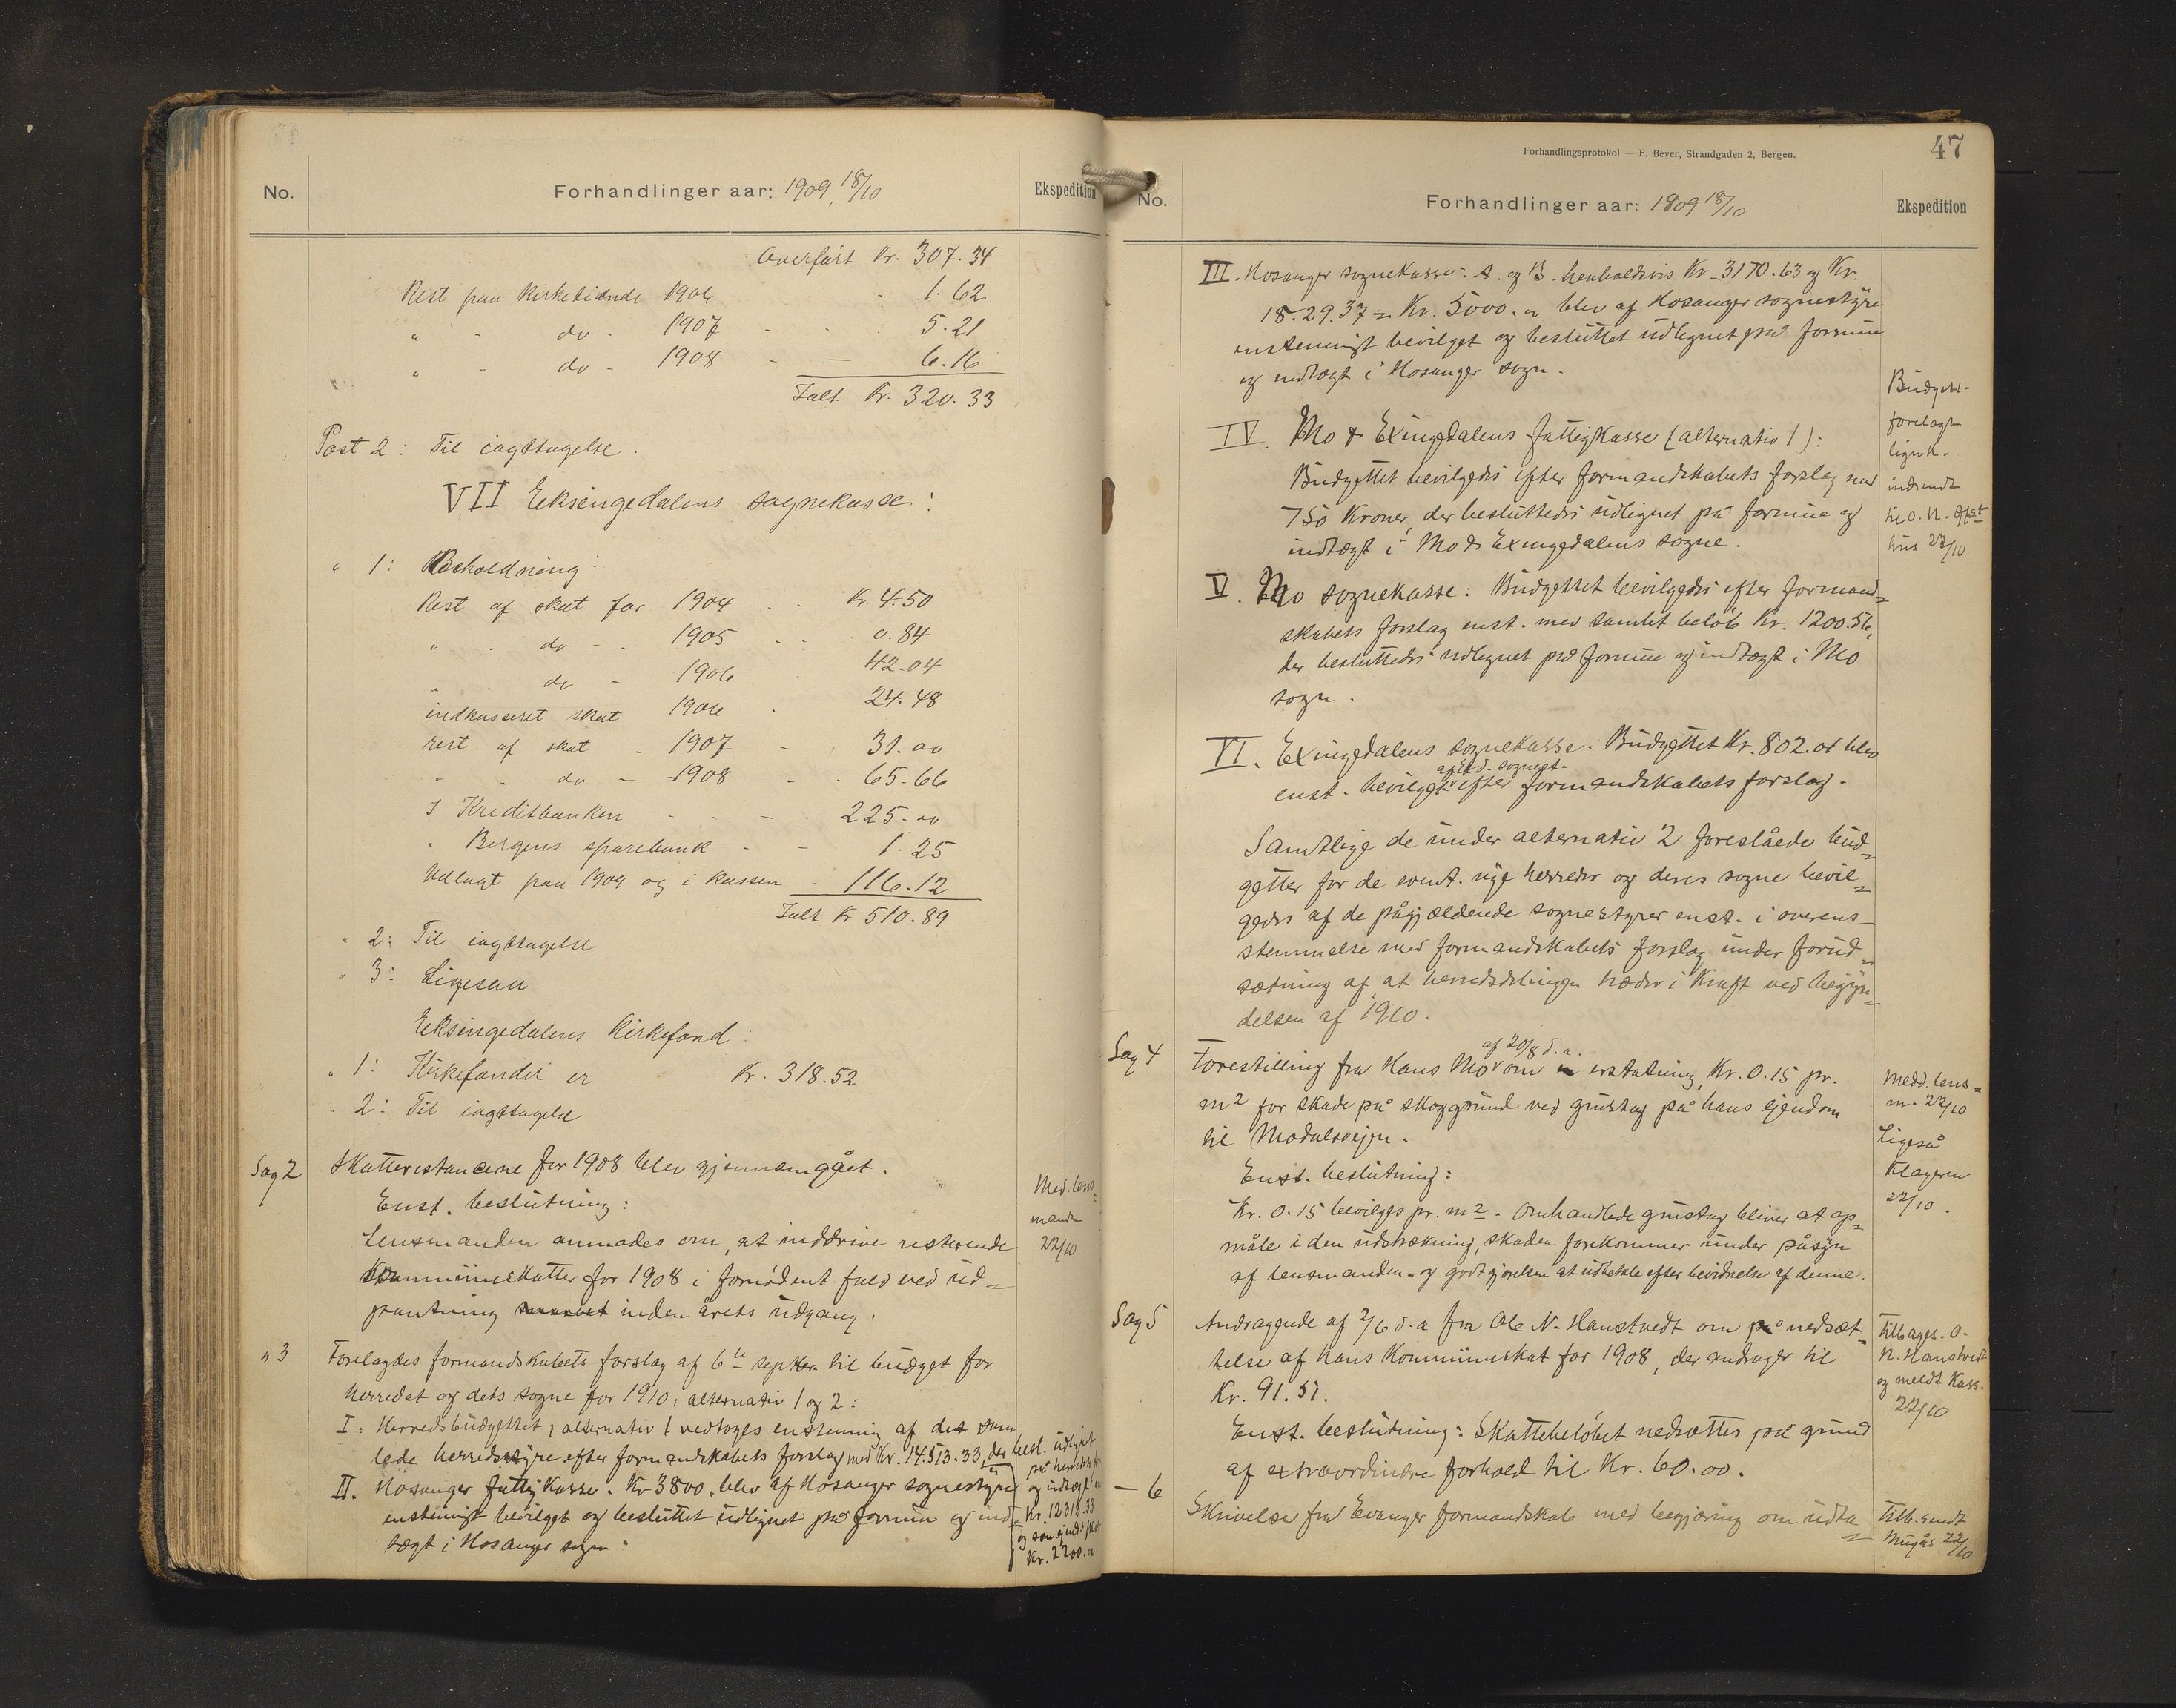 No.
Forhandlinger aar: 1909, 18/10
Ekspedition
Overført Kr. 307.34
Rest paa Kirketiende 1906 - - 1.62
" - do - 1907 - - - 5.21
" - do - 1908 - — 6.16
Ialt Kr. 320.33
Post 2: Til iagttagelse.
VII Eksingedalens sognekasse:
" 1: Beholdning:
Rest af skat for 1904 - - Kr. 4.50
" - do - - 1905 - - 0.84
" - do - 1906 - 42.04
indkasseret skat 1906 - 24.48
rest af skat - 1907 - - 31.00
" - do - 1908 - - 65.66
I Kreditbanken - - - 225.00
" Bergens sparebank - - 1.25
Udlagt paa 1909 og i kassen - 116.12
Ialt Kr 510.89
" 2: Til iagttagelse
" 3: Ligesaa
Eksingedalens Kirkefond:
" 1: Kirkefondet er Kr. 318.52
" 2: Til iagttagelse
Sag 2 Skatterestancerne for 1908 blev gjennemgået.
Enst. beslutning:
Lensmanden anmodes om, at inddrive resterende
kommuneskatter for 1908 i fornødent fald ved ud=
pantning inden årets udgang.
Med. lens=
manden
22/10
" 3 Forelagdes formandskabets forslag af 6te septbr. til budget for
herredet og dets sogne for 1910, alternativ 1 og 2:
I: Herredsbudgettet, alternativ 1 vedtoges enstemmig af det sam
lede herredsstyre efter formandskabets forslag med Kr. 14.513.33, der besl. udlignet
på herredets
og indtægt
Kr. 12313.33
og som ejend.
Kr. 2200.00
II. Hosanger fattigkasse. Kr 3800, blev af Hosanger sognestyre
enstemmigt bevilget og besluttet udlignet på formue og ind=
tægt i Hosanger sogn.
Forhandlingsprotokol — F. Beyer, Strandgaden 2, Bergen.
47
No.
Forhandlinger aar: 1909 18/10
Ekspedition
III. Hosanger sognekasse: A. og B. henholdsvis Kr. 3170.63 og Kr.
18.29.37 = Kr. 5000.00 blev af Hosanger sognestyre
enstemmigt bevilget og besluttet udlignet på formue
og indtægt i Hosanger sogn.
IV. Mo & Exingedalens fattigkasse (alternativ 1):
Budgettet bevilgedes efter formandskabets forslag med
750 Kroner, der besluttedes udlignet på formue og
indtægt i Mo & Exingedalens sogne.
Budgets-
forelagt
lign.k.
indsendt
til O. N.
hus 23/10
V. Mo sognekasse: Budgettet bevilgedes efter formand=
skabets forslag enst. med samlet beløb Kr. 1200.56,
der besluttedes udlignet på formue og indtægt i Mo
sogn.
VI. Exingedalens sognekasse. Budgettet Kr. 802.01 blev
af Exd. sognest.
enst. bevilget efter formandskabets forslag.
Samtlige de under alternativ 2 foreslåede bud=
getter for de event. nye herreder og deres sogne bevil=
gedes af de pågjældende sognestyrer enst. i overens-
stemmelse med formandskabets forslag under forud=
sætning af, at herredsdelingen træder i Kraft ved begyn=
delsen af 1910.
Sag 4
af 20/8 d.a.
Forestilling fra Hans Mo om erstatning, Kr. 0.15 pr.
m2 for skade på skoggrund ved grustag på hans ejendom
til Modalsvejen.
Enst. beslutning:
Kr. 0.15 bevilges pr. m2. Omhandlede grustag bliver at op=
måle i den udstrækning, skaden forekommer under påsyn
af lensmanden - og godtgjørelsen at udbetale efter bevidnelse af denne.
Medd. lens=
m. 22/10
Ligeså
Klageren
22/10.
Sag 5 Andragende af 2/6 d.a fra Ole N. Hanstvedt om nedsæt=
telse af hans Kommuneskat for 1908, der andrager til
Kr. 91.51.
Enst. beslutning: Skattebeløbet nedsættes på grund
af extraordinære forhold til Kr. 60.00.
Tilbages. O.
N. Hanstvedt
og meldt Kass.
22/10
— 6 Skrivelse fra Evanger formandskab med begjæring om udta=
Tilb. sendt
22/10